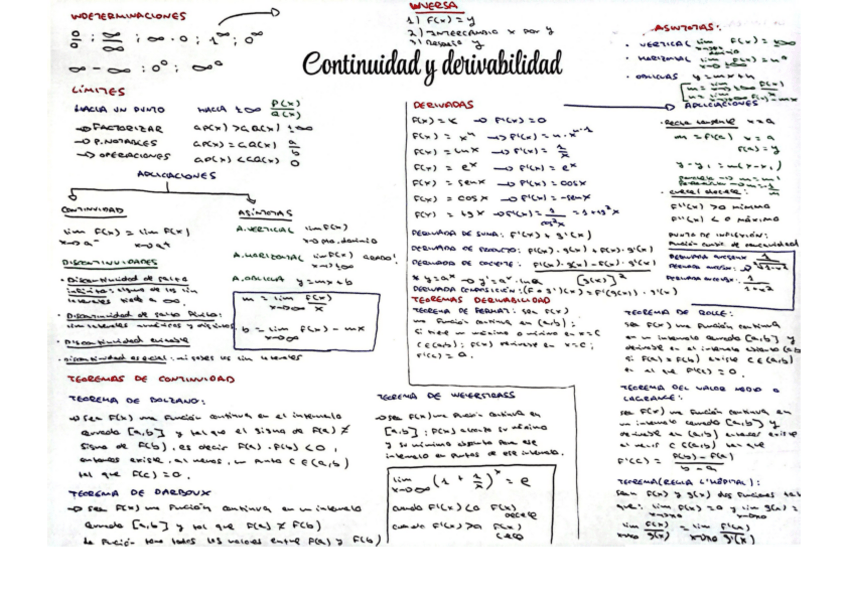 INDETERMINACIONES
0/0 ; ∞/∞ ; ∞·0 ; 1^∞ ; 0^∞
∞ - ∞ ; 0⁰ ; ∞⁰
INVERSA
1) F(x) = y
2) INTERCAMBIO x POR y
3) Despejo y
Continuidad y derivabilidad
ASÍNTOTAS:
VERTICAL
HORIZONTAL
OBLICUAS y = mx + n
LÍMITES
HACIA UN PUNTO
→ FACTORIZAR
→ P. NOTABLES
→ OPERACIONES
HACIA ±∞ P(x)/Q(x)
GP(x) > GQ(x) ±∞
GP(x) = GQ(x) a/b
GP(x) < GQ(x) 0
APLICACIONES
CONTINUIDAD
lim F(x) = lim F(x)
x→a⁻ x→a⁺
DISCONTINUIDADES
· Discontinuidad de salto
infinito: alguno de los lim
laterales
· Discontinuidad de salto finito:
lim laterales numéricos y distintos
· Discontinuidad evitable
· Discontinuidad esencial: no existen los lim laterales
ASÍNTOTAS
A. VERTICAL lim F(x)
A. HORIZONTAL lim F(x)
x→±∞
A. OBLICUA y = mx + b
m = lim F(x)/x
x→∞
b = lim F(x) - mx
x→∞
DERIVADAS
F(x) = K → F'(x) = 0
F(x) = xⁿ → F'(x) = n·xⁿ⁻¹
F(x) = lnx → F'(x) = 1/x
F(x) = eˣ → F'(x) = eˣ
F(x) = senx → F'(x) = cosx
F(x) = cosx → F'(x) = -senx
F(x) = tgx → F'(x) = 1/cos²x = 1 + tg²x
DERIVADA DE SUMA: F'(x) + g'(x)
DERIVADA DE PRODUCTO: F'(x)·g(x) + F(x)·g'(x)
DERIVADA DE COCIENTE: F'(x)·g(x) - F(x)·g'(x) / [g(x)]²
* y = aˣ → y' = aˣ·lna
DERIVADA COMPOSICIÓN: (F∘g)'(x) = F'(g(x))·g'(x)
APLICACIONES
· Recta tangente x = a
m = F'(a) x = a
F(a) = y
y - y₁ = m(x - x₁)
F''(x) > 0 mínimo
F''(x) < 0 máximo
PUNTO DE INFLEXIÓN:
Función cambia de concavidad
TEOREMAS DERIVABILIDAD
TEOREMA DE FERMAT: sea F(x)
una función continua en (a,b);
Si tiene un máximo o mínimo en x = c
c ∈ (a,b); F(x) derivable en x = c;
F'(c) = 0.
TEOREMA DE ROLLE:
sea F(x) una Función continua
en un intervalo cerrado [a,b] y
derivable en el intervalo abierto (a,b)
si F(a) = F(b) existe c ∈ (a,b)
en el que F'(c) = 0.
TEOREMA DEL VALOR MEDIO o
LAGRANGE:
sea F(x) una función continua en
un intervalo cerrado [a,b] y
derivable en (a,b) entonces existe
al menos c ∈ (a,b) tal que
F'(c) = F(b) - F(a) / b - a
TEOREMA (REGLA L'HÔPITAL):
sean F(x) y g(x) dos funciones tal
que: lim F(x) = 0 y lim g(x) =
lim F(x)/g(x) = lim F'(x)/g'(x)
TEOREMAS DE CONTINUIDAD
TEOREMA DE BOLZANO:
→ Sea F(x) una Función continua en el intervalo
cerrado [a,b] y tal que el signo de F(a) ≠
signo de F(b), es decir F(a)·F(b) < 0,
entonces existe, al menos, un punto c ∈ (a,b)
tal que F(c) = 0.
TEOREMA DE DARBOUX
→ Sea F(x) una Función continua en un intervalo
cerrado [a,b] y tal que F(a) ≠ F(b)
la función toma todos los valores entre F(a) y F(b)
TEOREMA DE WEIERSTRASS
→ Sea F(x) una función continua en
[a,b]; F(x) alcanza su máximo
y su mínimo absoluto para ese
intervalo en puntos de ese intervalo.
lim (1 + 1/x)ˣ = e
x→∞
cuando F'(x) < 0 F(x)
decrece
cuando F'(x) > 0 F(x)
crece